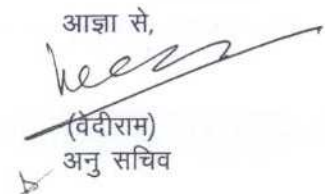 आज्ञा से,
(वेदीराम)
अनु सचिव